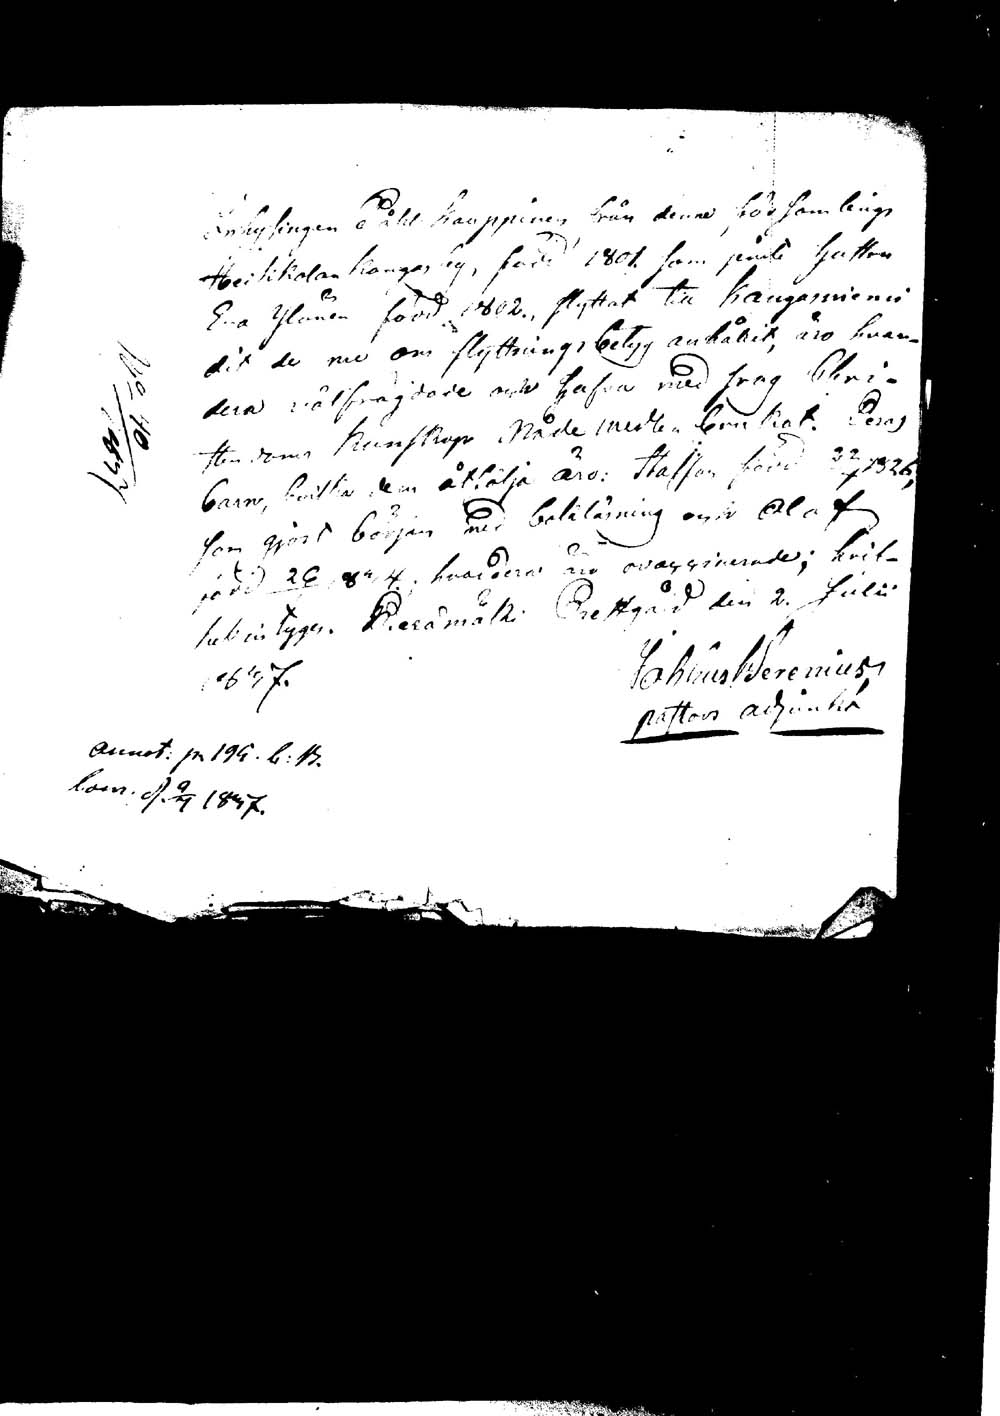 Inhysingen Påhl Kauppinen från denne församlings
Heikkolankangas by, född 1801. som jemte hustrun
Eva Ylänen född 1802., flyttat till Kangasniemi
dit de nu om flyttnings betyg anhållit, äro hvar-
dera välfrägdade och hafva med svag Chri-
stendoms kunskap Nåde medlen brukat. Deras
barn, hvilka dem åtfölja äro: Staffan född 1826,
som gjort början med bokläsning och Olof
född 18 4, hvardera äro ovaxinerade; hvil-
ket intygas. Pieksämäki Prestgård den 2. Julii
18 7.
Johannes Perenius,
pastors adjunkt
annot: p. 196. C: B.
Com. d. 9/7 18 7.
No 40